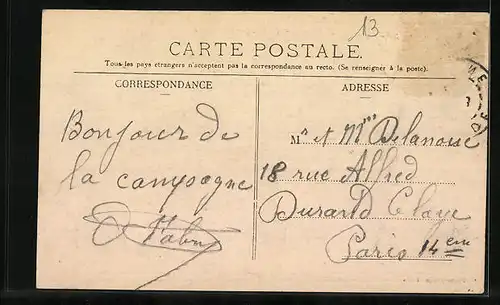 13
CARTE POSTALE.
Tous les pays étrangers n'acceptent pas la correspondance au recto. (Se renseigner à la poste).
CORRESPONDANCE
ADRESSE
Bonjour de
la campagne
M r et Mme Delanoue
18 rue Alfred
Durand Claye
Paris 14 eme